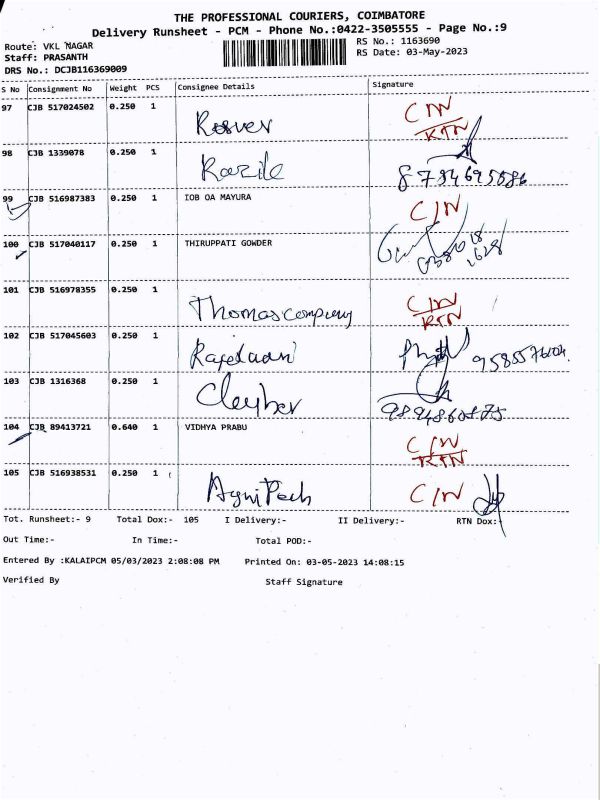 THE PROFESSIONAL COURIERS, COIMBATORE
Delivery Runsheet - PCM - Phone No.:0422-3505555 - Page No.:9
Route: VKL NAGAR
RS No.: 1163690
Staff: PRASANTH
RS Date: 03-May-2023
DRS No.: DCJB116369009
S No Consignment No Weight PCS Consignee Details Signature
97 CJB 517024502 0.250 1 C/N
RTN
98 CJB 1339078 0.250 1
99 CJB 516987383 0.250 1 IOB OA MAYURA C/N
100 CJB 517040117 0.250 1 THIRUPPATI GOWDER
101 CJB 516978355 0.250 1 Thomas company C/N
RTN
102 CJB 517045603 0.250 1
103 CJB 1316368 0.250 1
104 CJB 89413721 0.640 1 VIDHYA PRABU C/N
RTN
105 CJB 516938531 0.250 1 C/N
Tot. Runsheet:- 9 Total Dox:- 105 I Delivery:- II Delivery:- RTN Dox:-
Out Time:- In Time:- Total POD:-
Entered By :KALAIPCM 05/03/2023 2:08:08 PM Printed On: 03-05-2023 14:08:15
Verified By Staff Signature